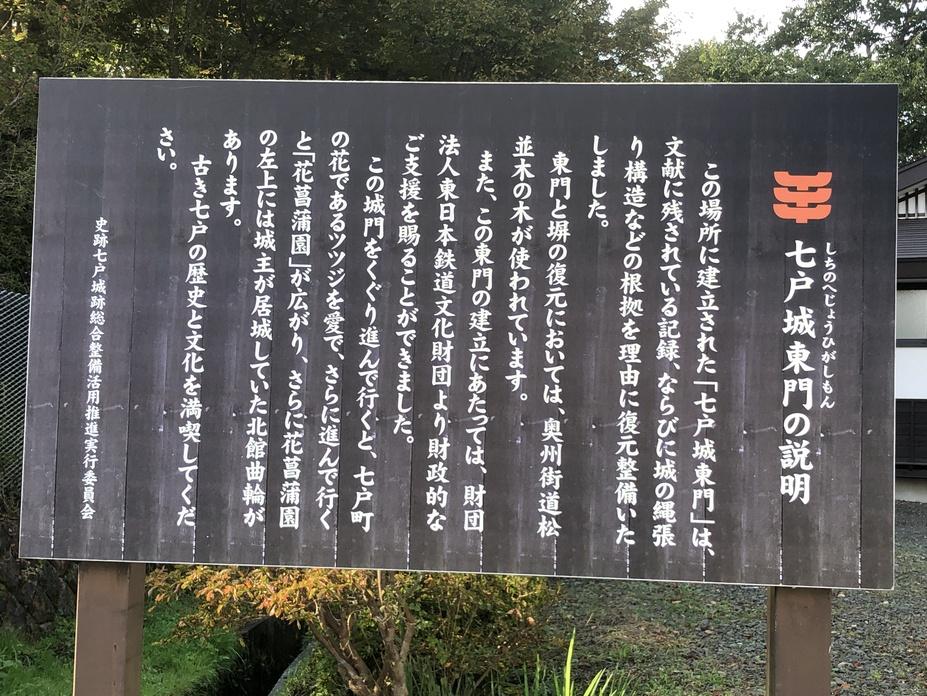 しちのへじょうひがしもん
七戸城東門の説明
この場所に建立された「七戸城東門」は、
文献に残されている記録、ならびに城の縄張
り構造などの根拠を理由に復元整備いた
しました。
東門と塀の復元においては、奥州街道松
並木の木が使われています。
また、この東門の建立にあたっては、財団
法人東日本鉄道文化財団より財政的な
ご支援を賜ることができました。
この城門をくぐり進んで行くと、七戸町
の花であるツツジを愛で、さらに進んで行く
と「花菖蒲園」が広がり、さらに花菖蒲園
の左上には城主が居城していた北館曲輪が
あります。
古き七戸の歴史と文化を満喫してくだ
さい。
史跡七戸城跡総合整備活用推進実行委員会